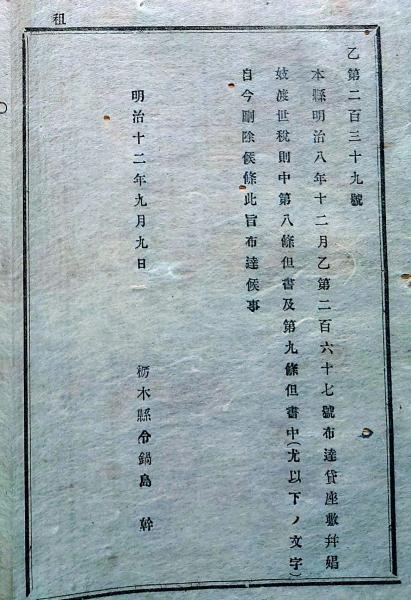 租
乙第二百三十九號
本縣明治八年十二月乙第二百六十七號布達貸座敷幷娼
妓渡世税則中第八條但書及第九條但書中(尤以下ノ文字)
自今刪除候條此旨布達候事
明治十二年九月九日
栃木縣令鍋島幹